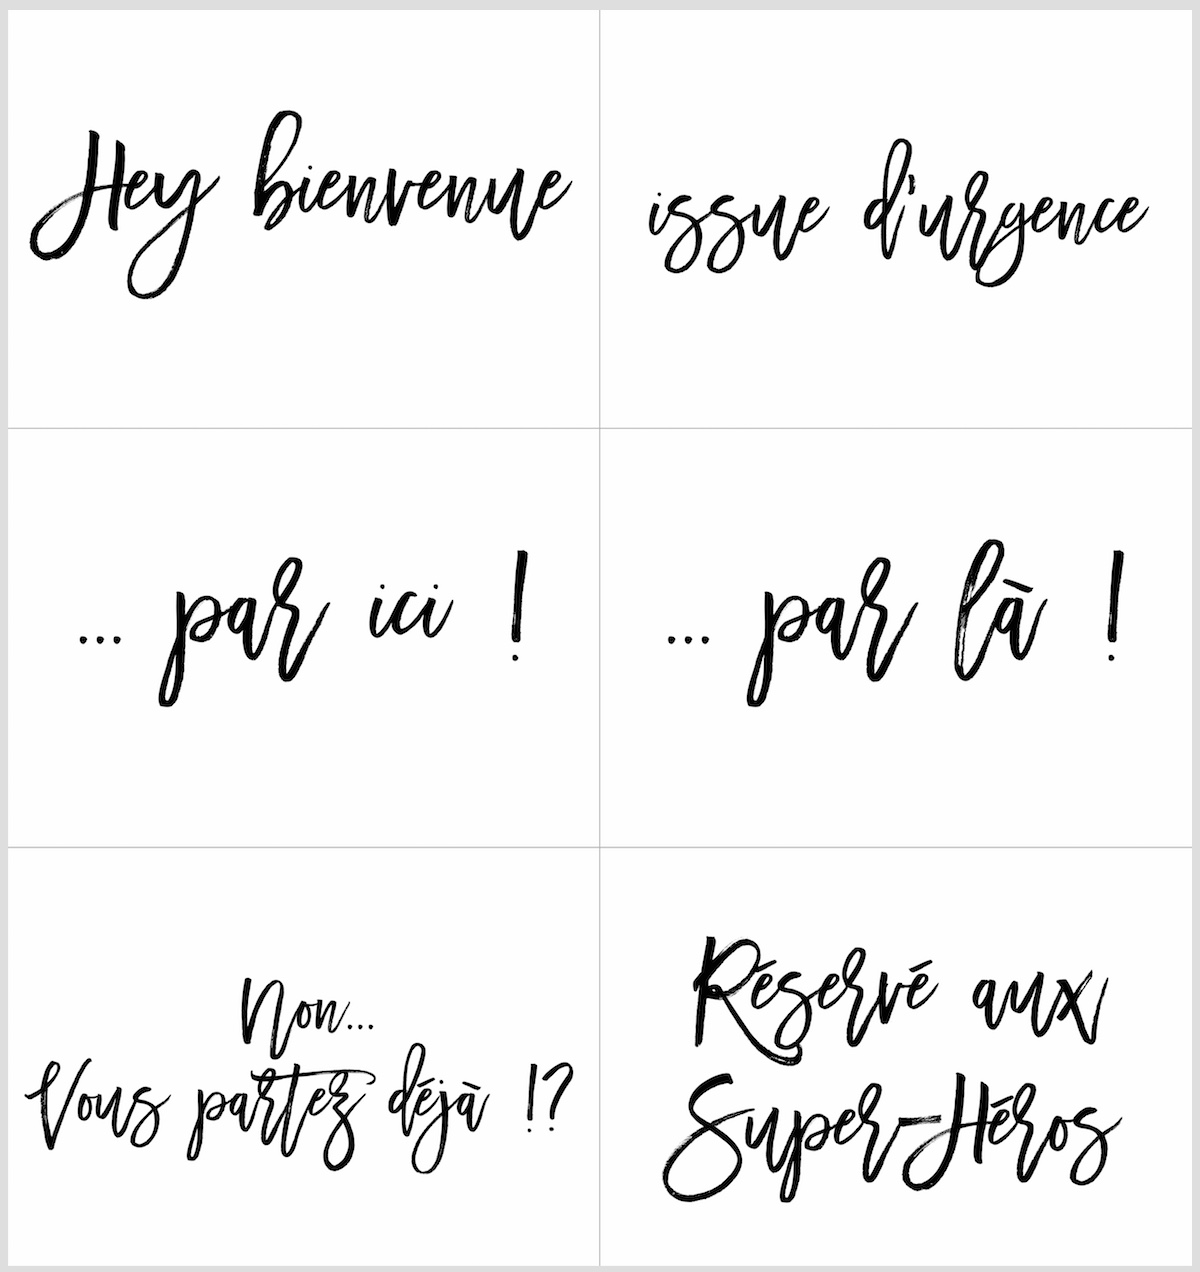 Hey bienvenue
issue d'urgence
... par ici !
... par là !
Non...
Vous partez déjà !?
Réservé aux
Super-Héros